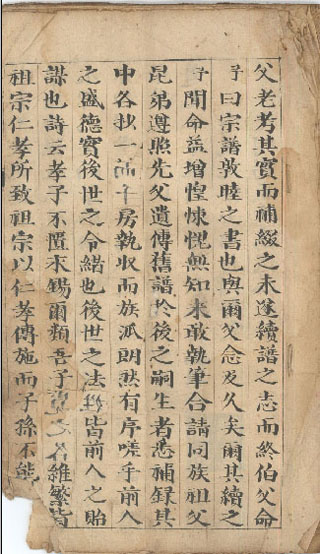 父老考其實而補綴之未遂續譜之志而終伯父命
予曰宗譜敦睦之書也與爾父念及久矣爾其續之
予聞命益增惶悚愧無知未敢執筆合請同族祖父
昆弟遵照先父遺傳舊譜於後之嗣生者悉補録其
中各抄一㳍千房執收而族派朗然有序嗟乎前人
之盛德實後世之令緒也後世之法皆前人之貽
謀也詩云孝子不匱永錫爾類吾子名雖繁皆
祖宗仁孝所致祖宗以仁孝傳施而子孫不能